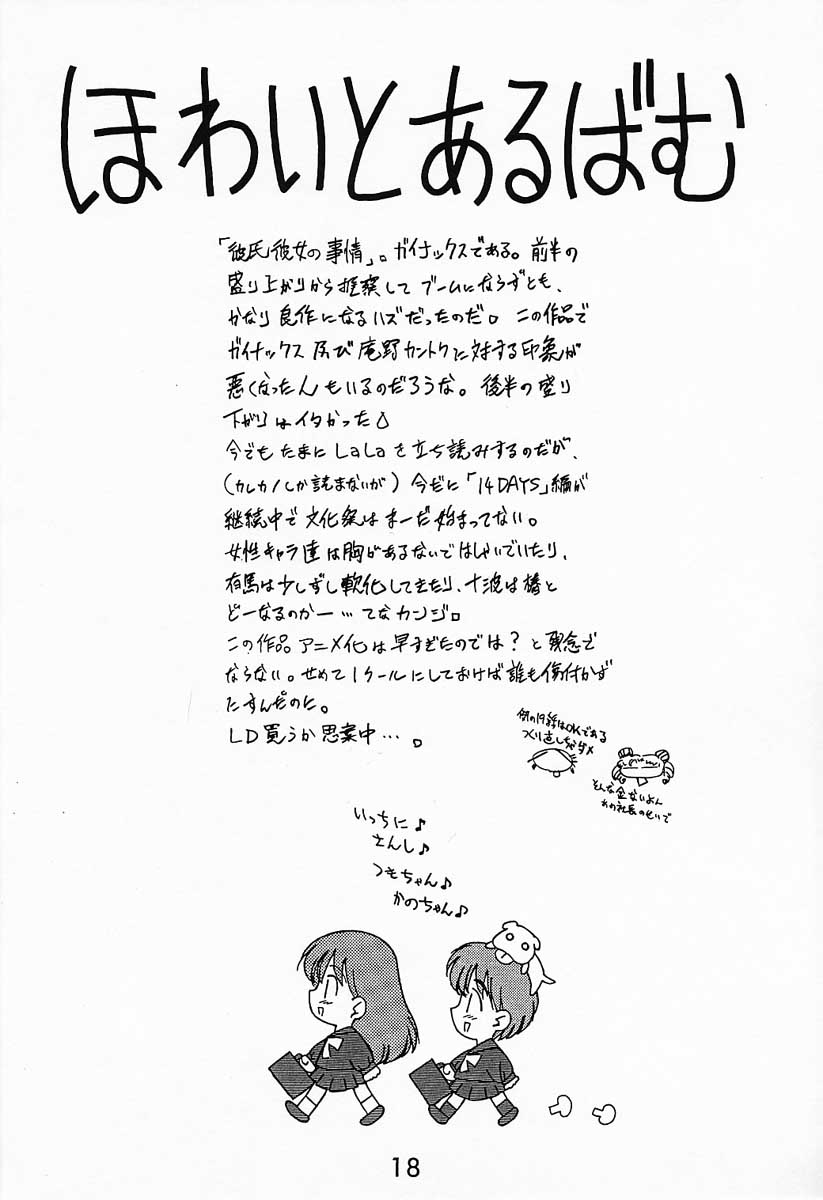 ほわいとあるばむ
「彼氏彼女の事情」。ガイナックスである。前半の
盛り上がりから推察して ブームにならずとも、
かなり良作になるハズだったのだ。この作品で
ガイナックス及び庵野カントクに対する印象が
悪くなったんもいるのだろうな。後半の盛り
下がりはイタかった
今でもたまにLaLaを立ち読みするのだが、
(カレカノしか読まないが)今だに「14DAYS」編が
継続中で文化祭はまーだ始まってない。
女性キャラ達は胸があるないではしゃいでいたり、
有馬は少しずし軟化してきたり、十波は椿と
どーなるのかー…てなカンジ。
この作品アニメ化は早すぎたのでは?と残念で
ならない。せめて1クールにしておけば誰も傷付かず
にすんだのに。
LD買うか思案中…。
例の19話はOKである
つくり直しちゃダメ
そんな金ないよん
あの社長のせいで
いっちに♪
さんし♪
つきちゃん♪
かのちゃん♪
18